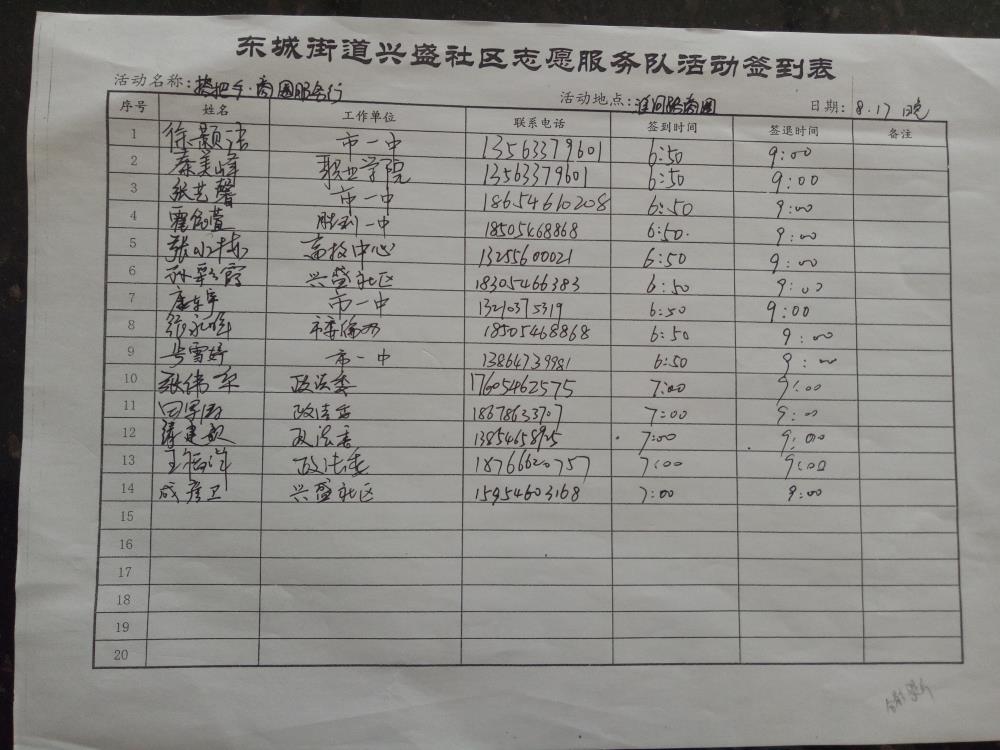 东城街道兴盛社区志愿服务队活动签到表
活动名称: 搭把手·商圈服务行 活动地点: 商圈 日期: 8.17 晚
序号 姓名 工作单位 联系电话 签到时间 签退时间 备注
1 徐颢 市一中 13563379601 6:50 9:00
2 秦美峰 职业学院 13563379601 6:50 9:00
3 张艺馨 市一中 18654610208 6:50 9:00
4 胜利一中 18505468868 6:50 9:00
5 张小栋 高投中心 13255600021 6:50 9:00
6 孙彩霞 兴盛社区 18305466383 6:50 9:00
7 市一中 13210375319 6:50 9:00
8 张永峰 市委编办 18505468868 6:50 9:00
9 雪婷 市一中 13864739981 6:50 9:00
10 张伟军 政法委 17605462575 7:00 9:00
11 政法委 18678633707 7:00 9:00
12 政法委 13854658925 7:00 9:00
13 政法委 18766620757 7:00 9:00
14 成彦卫 兴盛社区 15954603168 7:00 9:00
15
16
17
18
19
20